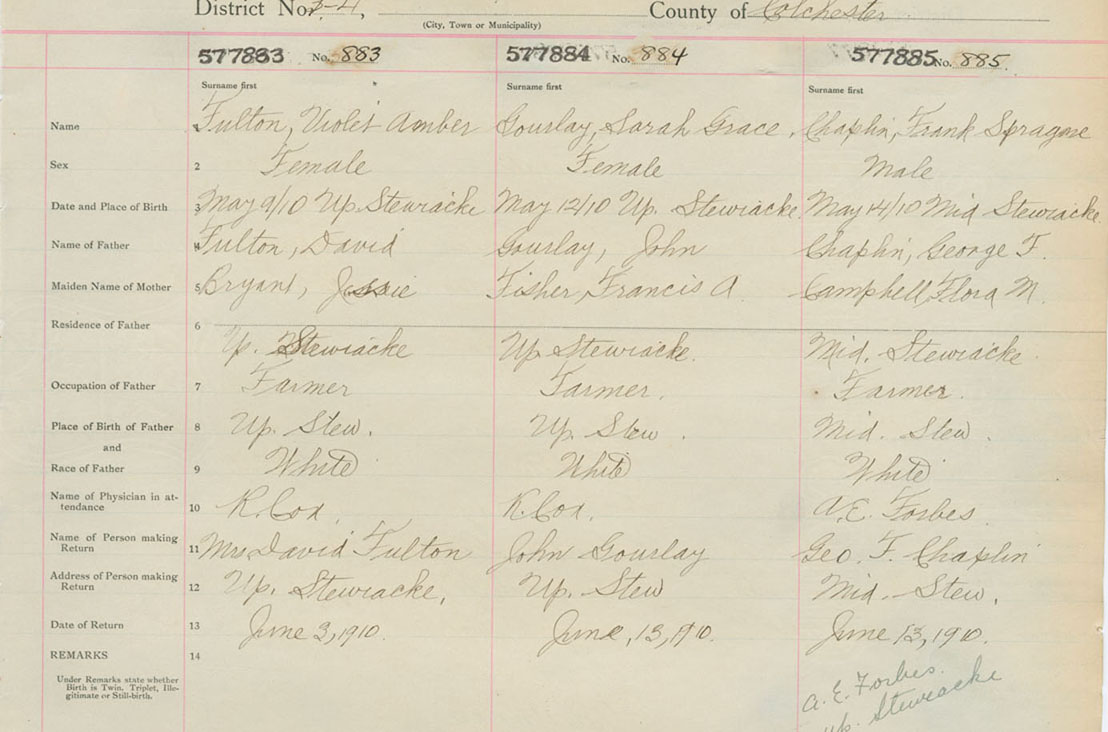 District No. County of Colchester
(City, Town or Municipality)
577883 No. 883 577884 No. 884 577885 No. 885
Surname first Surname first Surname first
Name 1 Fulton, Violet Amber Gourlay, Sarah Grace. Chaplin, Frank Sprague
Sex 2 Female Female Male
Date and Place of Birth 3 May 9/10 Up. Stewiacke May 12/10 Up. Stewiacke May 14/10 Mid Stewiacke
Name of Father 4 Fulton, David Gourlay, John Chaplin, George F.
Maiden Name of Mother 5 Bryant, Jessie Fisher, Francis A Campbell, Flora M.
Residence of Father 6
Up. Stewiacke Up Stewiacke. Mid. Stewiacke
Occupation of Father 7 Farmer Farmer. Farmer.
Place of Birth of Father 8 Up. Stew. Up. Stew. Mid. Stew.
and
Race of Father 9 White White White
Name of Physician in at-
tendance 10 R. Cox. R. Cox. A. E. Forbes.
Name of Person making
Return 11 Mrs David Fulton John Gourlay Geo. F. Chaplin
Address of Person making
Return 12 Up. Stewiacke, Up. Stew Mid. Stew.
Date of Return 13 June 3, 1910. June, 13, 1910. June 13, 1910.
REMARKS 14
Under Remarks state whether
Birth is Twin. Triplet, Ille-
gitimate or Still-birth.
A. E. Forbes.
Up. Stewiacke